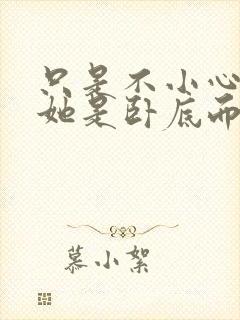 只是不小心
她是卧底而
慕小絮